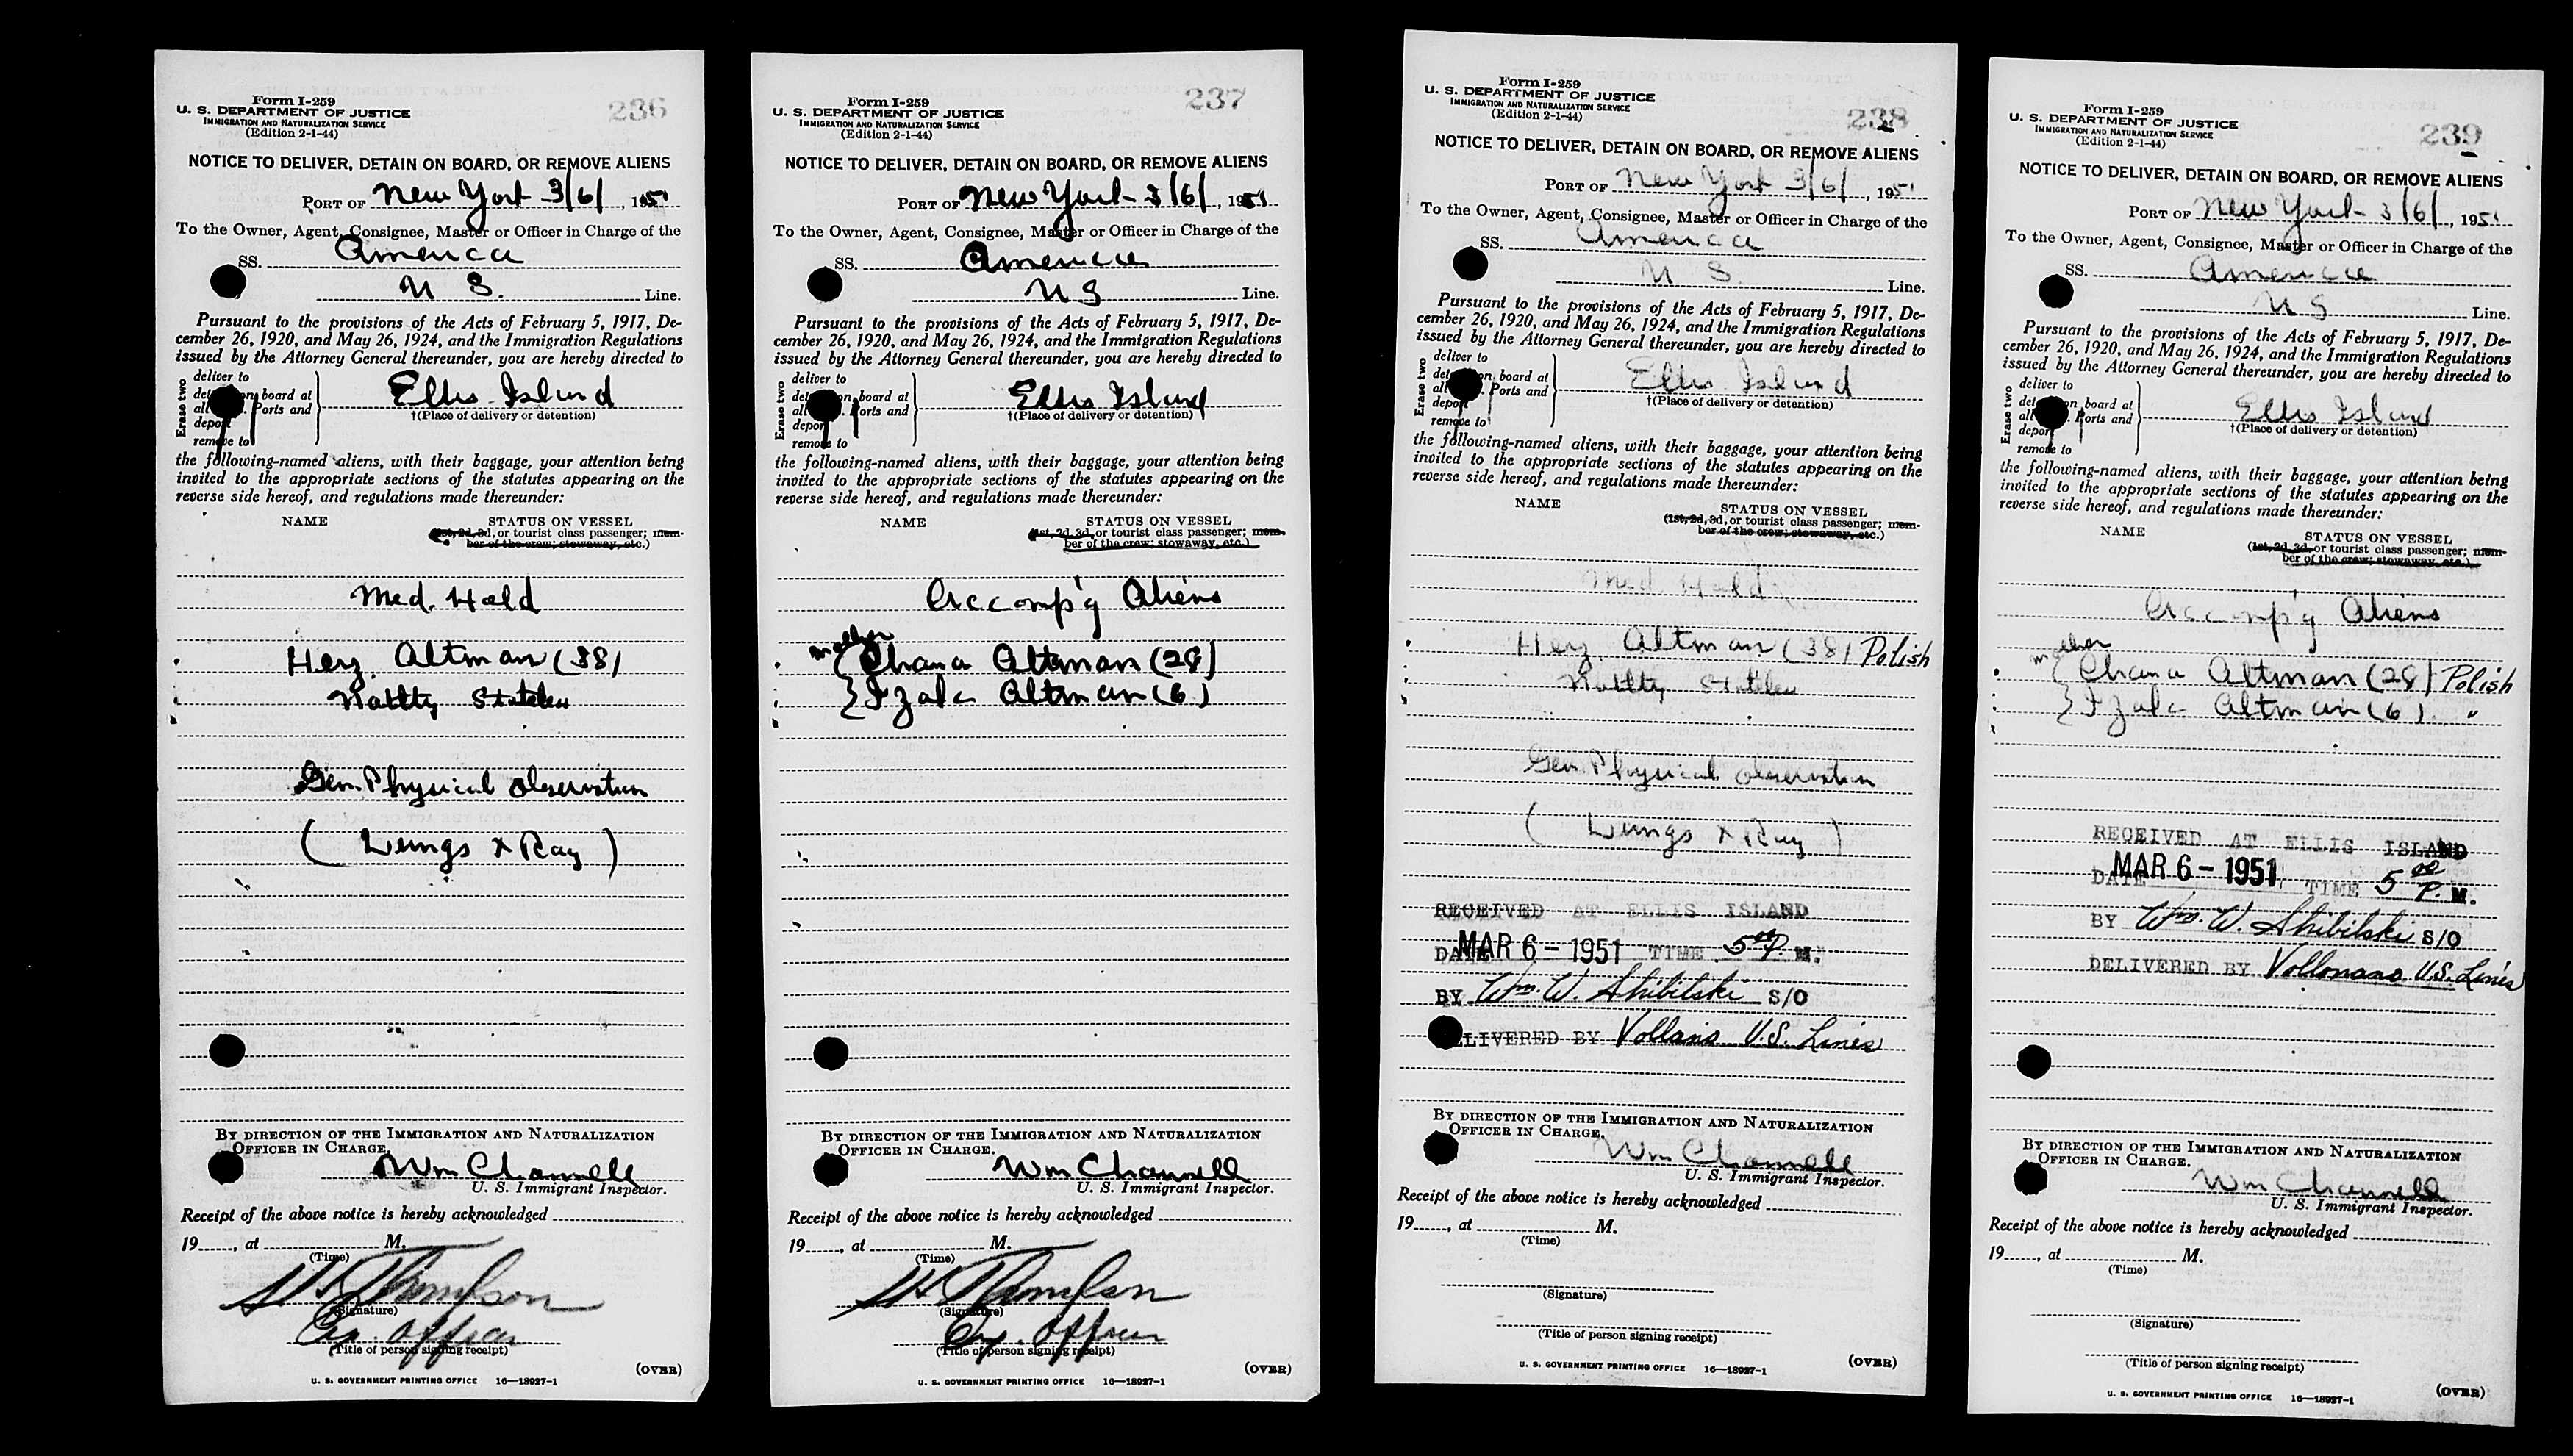 Form I-259
U. S. DEPARTMENT OF JUSTICE
IMMIGRATION AND NATURALIZATION SERVICE
(Edition 2-1-44)
236
NOTICE TO DELIVER, DETAIN ON BOARD, OR REMOVE ALIENS
PORT OF New York 3/6/, 1951
To the Owner, Agent, Consignee, Master or Officer in Charge of the
SS. America
U S. Line.
Pursuant to the provisions of the Acts of February 5, 1917, De-
cember 26, 1920, and May 26, 1924, and the Immigration Regulations
issued by the Attorney General thereunder, you are hereby directed to
Erase two
deliver to
on board at
Ports and
remove to
Ellis Island
†(Place of delivery or detention)
the following-named aliens, with their baggage, your attention being
invited to the appropriate sections of the statutes appearing on the
reverse side hereof, and regulations made thereunder:
NAME STATUS ON VESSEL
(1st, 2d, 3d, or tourist class passenger; mem-
ber of the crew; stowaway, etc.)
Med. Held
Herz Altman (38)
Natlty Stateless
Gen. Physical Observation
( Lungs X Ray )
BY DIRECTION OF THE IMMIGRATION AND NATURALIZATION
OFFICER IN CHARGE.
Wm Channell
U. S. Immigrant Inspector.
Receipt of the above notice is hereby acknowledged
19, at M.
(Time)
Thompson
(Signature)
Ex. Officer
(Title of person signing receipt)
(OVER)
U. S. GOVERNMENT PRINTING OFFICE 16—18927-1
Form I-259
U. S. DEPARTMENT OF JUSTICE
IMMIGRATION AND NATURALIZATION SERVICE
(Edition 2-1-44)
237
NOTICE TO DELIVER, DETAIN ON BOARD, OR REMOVE ALIENS
PORT OF New York 3/6/, 1951
To the Owner, Agent, Consignee, Master or Officer in Charge of the
SS. America
U S Line.
Pursuant to the provisions of the Acts of February 5, 1917, De-
cember 26, 1920, and May 26, 1924, and the Immigration Regulations
issued by the Attorney General thereunder, you are hereby directed to
Erase two
deliver to
on board at
Ports and
remove to
Ellis Island
†(Place of delivery or detention)
the following-named aliens, with their baggage, your attention being
invited to the appropriate sections of the statutes appearing on the
reverse side hereof, and regulations made thereunder:
NAME STATUS ON VESSEL
(1st, 2d, 3d, or tourist class passenger; mem-
ber of the crew; stowaway, etc.)
Accomp'g Aliens
mother
Chana Altman (28)
Izak Altman (6)
BY DIRECTION OF THE IMMIGRATION AND NATURALIZATION
OFFICER IN CHARGE.
Wm Channell
U. S. Immigrant Inspector.
Receipt of the above notice is hereby acknowledged
19, at M.
(Time)
Thompson
(Signature)
Ex. Officer
(Title of person signing receipt)
(OVER)
U. S. GOVERNMENT PRINTING OFFICE 16—18927-1
Form I-259
U. S. DEPARTMENT OF JUSTICE
IMMIGRATION AND NATURALIZATION SERVICE
(Edition 2-1-44)
238
NOTICE TO DELIVER, DETAIN ON BOARD, OR REMOVE ALIENS
PORT OF New York 3/6/, 1951
To the Owner, Agent, Consignee, Master or Officer in Charge of the
SS. America
U S. Line.
Pursuant to the provisions of the Acts of February 5, 1917, De-
cember 26, 1920, and May 26, 1924, and the Immigration Regulations
issued by the Attorney General thereunder, you are hereby directed to
Erase two
deliver to
on board at
Ports and
remove to
Ellis Island
†(Place of delivery or detention)
the following-named aliens, with their baggage, your attention being
invited to the appropriate sections of the statutes appearing on the
reverse side hereof, and regulations made thereunder:
NAME STATUS ON VESSEL
(1st, 2d, 3d, or tourist class passenger; mem-
ber of the crew; stowaway, etc.)
Med. Held
Herz Altman (38) Polish
Natlty Stateless
Gen. Physical Observation
( Lungs X Ray )
RECEIVED AT ELLIS ISLAND
DATE MAR 6 - 1951 TIME 5 00 P. M.
BY Wm. W. Shibilski S/O
DELIVERED BY U.S. Lines
BY DIRECTION OF THE IMMIGRATION AND NATURALIZATION
OFFICER IN CHARGE.
Wm Channell
U. S. Immigrant Inspector.
Receipt of the above notice is hereby acknowledged
19, at M.
(Time)
(Signature)
(Title of person signing receipt)
(OVER)
U. S. GOVERNMENT PRINTING OFFICE 16—18927-1
Form I-259
U. S. DEPARTMENT OF JUSTICE
IMMIGRATION AND NATURALIZATION SERVICE
(Edition 2-1-44)
239
NOTICE TO DELIVER, DETAIN ON BOARD, OR REMOVE ALIENS
PORT OF New York 3/6/, 1951
To the Owner, Agent, Consignee, Master or Officer in Charge of the
SS. America
U S Line.
Pursuant to the provisions of the Acts of February 5, 1917, De-
cember 26, 1920, and May 26, 1924, and the Immigration Regulations
issued by the Attorney General thereunder, you are hereby directed to
Erase two
deliver to
on board at
Ports and
remove to
Ellis Island
†(Place of delivery or detention)
the following-named aliens, with their baggage, your attention being
invited to the appropriate sections of the statutes appearing on the
reverse side hereof, and regulations made thereunder:
NAME STATUS ON VESSEL
(1st, 2d, 3d, or tourist class passenger; mem-
ber of the crew; stowaway, etc.)
Accomp'g Aliens
mother
Chana Altman (28) Polish
Izak Altman (6) "
RECEIVED AT ELLIS ISLAND
DATE MAR 6 - 1951 TIME 5 00 P. M.
BY Wm. W. Shibilski S/O
DELIVERED BY U.S. Lines
BY DIRECTION OF THE IMMIGRATION AND NATURALIZATION
OFFICER IN CHARGE.
Wm Channell
U. S. Immigrant Inspector.
Receipt of the above notice is hereby acknowledged
19, at M.
(Time)
(Signature)
(Title of person signing receipt)
(OVER)
U. S. GOVERNMENT PRINTING OFFICE 16—18927-1